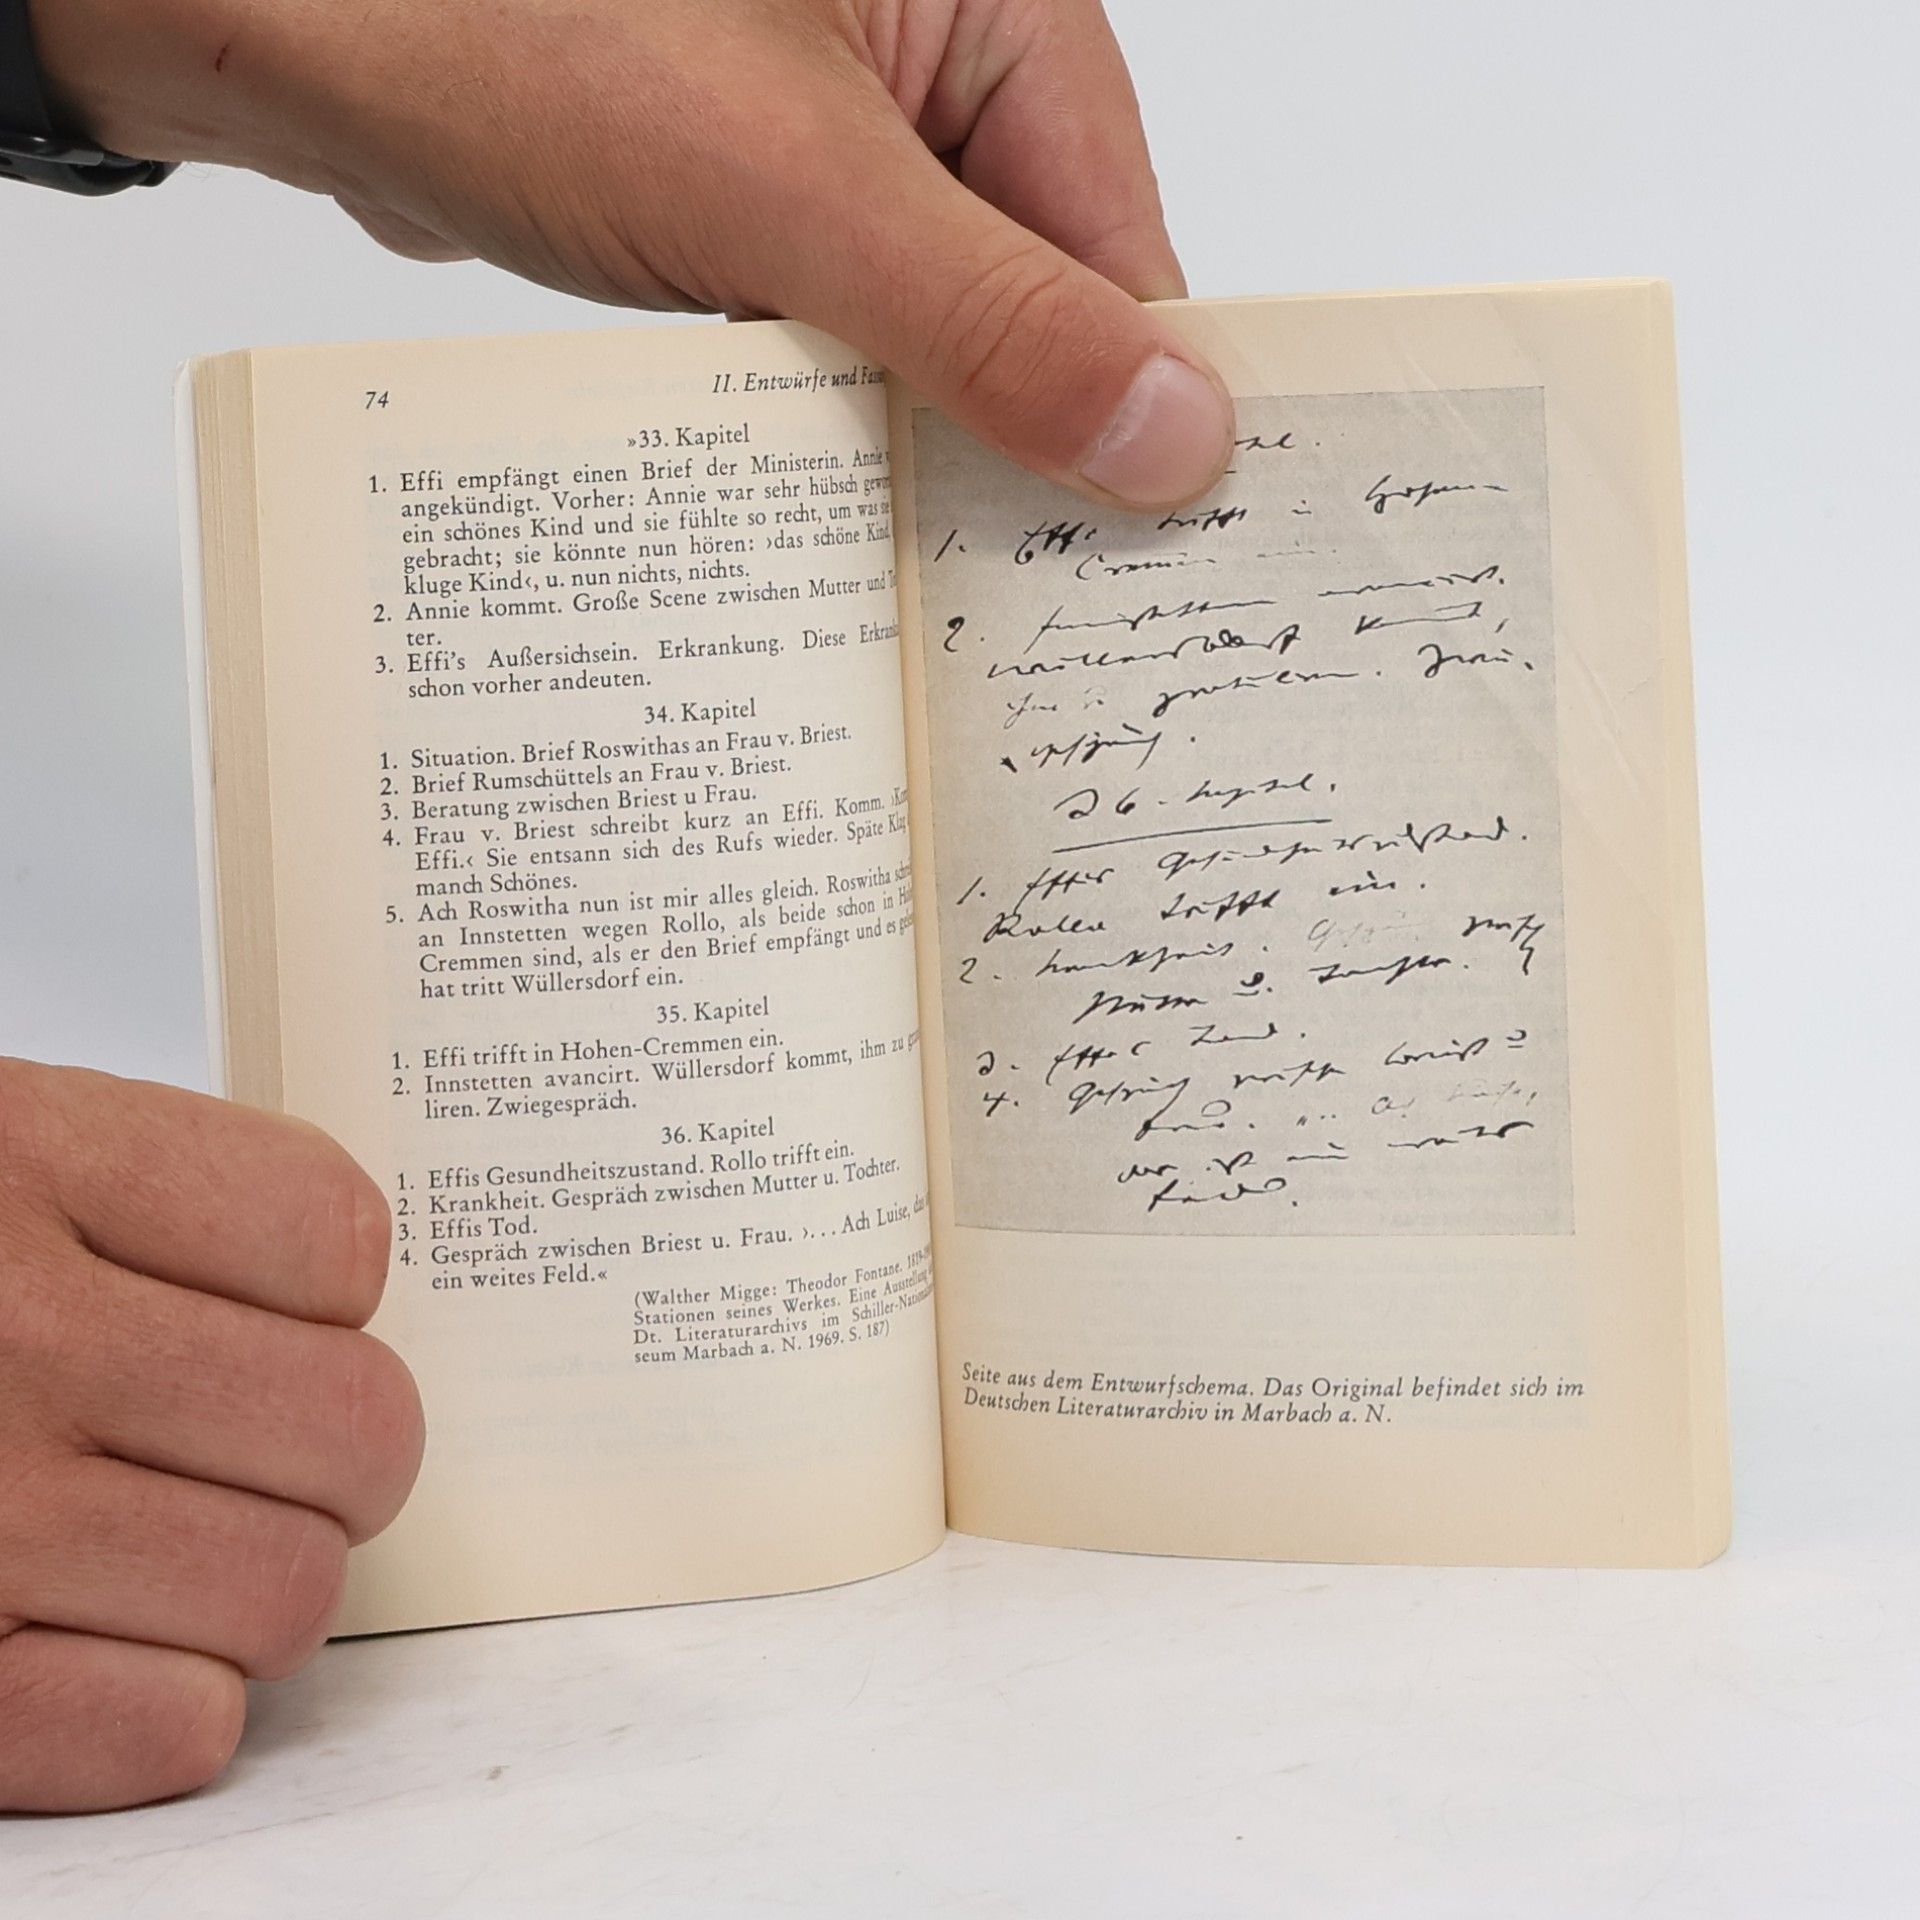 74
II. Entwürfe und
»33. Kapitel
1. Effi empfängt einen Brief der Ministerin. Annie
angekündigt. Vorher: Annie war sehr hübsch
ein schönes Kind und sie fühlte so recht, um was sie
gebracht; sie könnte nun hören: ›das schöne Kind,
kluge Kind‹, u. nun nichts, nichts.
2. Annie kommt. Große Scene zwischen Mutter und
ter.
3. Effi's Außersichsein. Erkrankung. Diese
schon vorher andeuten.
34. Kapitel
1. Situation. Brief Roswithas an Frau v. Briest.
2. Brief Rumschüttels an Frau v. Briest.
3. Beratung zwischen Briest u Frau.
4. Frau v. Briest schreibt kurz an Effi. Komm.
Effi.‹ Sie entsann sich des Rufs wieder. Späte
manch Schönes.
5. Ach Roswitha nun ist mir alles gleich. Roswitha
an Innstetten wegen Rollo, als beide schon in
Cremmen sind, als er den Brief empfängt und es
hat tritt Wüllersdorf ein.
35. Kapitel
1. Effi trifft in Hohen-Cremmen ein.
2. Innstetten avancirt. Wüllersdorf kommt, ihm zu
liren. Zwiegespräch.
36. Kapitel
1. Effis Gesundheitszustand. Rollo trifft ein.
2. Krankheit. Gespräch zwischen Mutter u. Tochter.
3. Effis Tod.
4. Gespräch zwischen Briest u. Frau. ›. . . Ach Luise, das
ein weites Feld.«
(Walther Migge: Theodor Fontane.
Stationen seines Werkes. Eine Ausstellung
Dt. Literaturarchivs im
seum Marbach a. N. 1969. S. 187)
1. Effi trifft in Hohen-
Cremmen ein.
2. Innstetten avancirt.
Wüllersdorf kommt,
ihm zu gratuliren. Zwie-
gespräch.
36. Kapitel.
1. Effis Gesundheitszustand.
Rollo trifft ein.
2. Krankheit. Gespräch zwisch
Mutter u. Tochter.
3. Effis Tod.
4. Gespräch zwischen Briest u
Frau. Ach Luise,
das ist ein weites
Feld.
Seite aus dem Entwurfschema. Das Original befindet sich im
Deutschen Literaturarchiv in Marbach a. N.